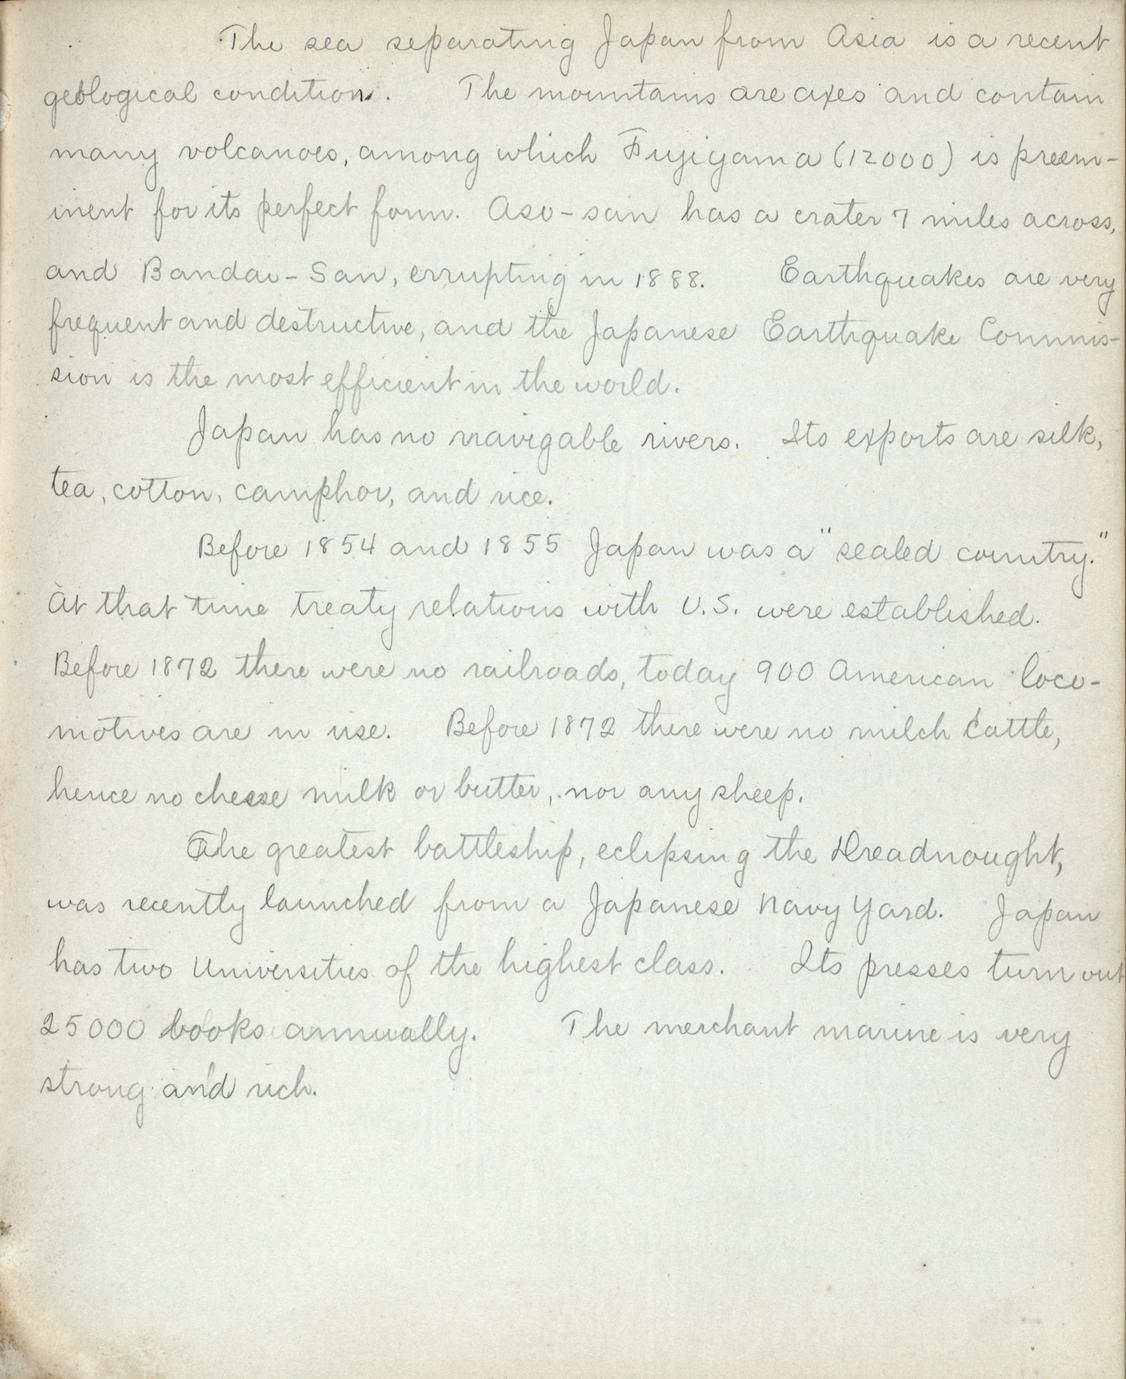 The sea separating Japan from Asia is a recent
geological condition. The mountains are axes and contain
many volcanoes, among which Fujiyama (12000) is preem-
inent for its perfect form. Aso-san has a crater 7 miles across,
and Bandai-San, errupting in 1888. Earthquakes are very
frequent and destructive, and the Japanese Earthquake Commis-
sion is the most efficient in the world.
Japan has no navigable rivers. Its exports are silk,
tea, cotton, camphor, and rice.
Before 1854 and 1855 Japan was a "sealed country."
At that time treaty relations with U.S. were established.
Before 1872 there were no railroads, today 900 American loco-
motives are in use. Before 1872 there were no milch cattle,
hence no cheese milk or butter, nor any sheep.
The greatest battleship, eclipsing the Dreadnought,
was recently launched from a Japanese Navy Yard. Japan
has two Universities of the highest class. Its presses turn out
25000 books annually. The merchant marine is very
strong and rich.